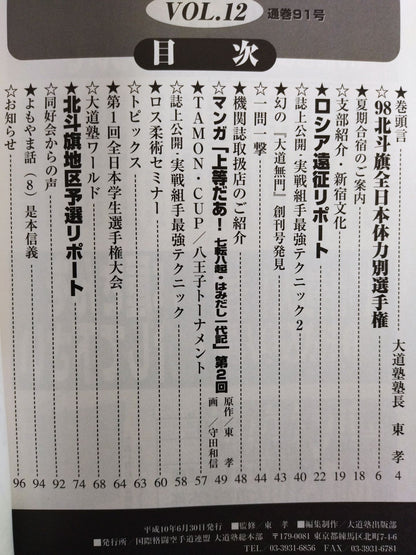 VOL.12 通巻91号
目次
★巻頭言 大道塾塾長 東 孝 4
★98北斗旗全日本体力別選手権 6
☆夏期合宿のご案内 18
☆支部紹介・新宿文化 19
★ロシア遠征リポート 22
☆誌上公開・実戦組手最強テクニック2 40
☆幻の『大道無門』創刊号発見 43
☆一問一撃 44
☆機関誌取扱店のご紹介 48
★マンガ「上等だあ！ 七転八起・はみだし一代記」第2回 原作／東 孝 画／守田和信 49
☆TAMON・CUP／八王子トーナメント 57
☆誌上公開・実戦組手最強テクニック 58
☆ロス柔術セミナー 60
☆トピックス 63
☆第1回全日本学生選手権大会 64
☆大道塾ワールド 68
★北斗旗地区予選リポート 74
☆同好会からの声 92
☆よもやま話（8）是本信義 94
☆お知らせ 96
平成10年6月30日発行 ■監修／東 孝 ■編集制作／大道塾出版部
■発行所／国際格闘空手道連盟 大道塾総本部 〒179-0081 東京都練馬区北町7-4-6
TEL 03-3931-6856 FAX 03-3931-6781